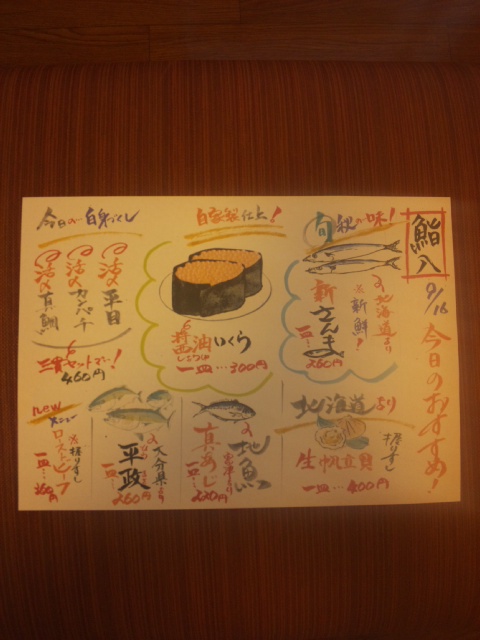 鮨八
9/16
今日のおすすめ!
旬 秋の味!
北海道より
※新鮮!
新さんま
一皿…260円
自家製仕上!
醤油いくら
しょうゆ
一皿…300円
今日の白身づくし
活〆平目
活〆カンパチ
活〆真鯛
三貫セットで…!
460円
北海道より
握りずし
生帆立貝
一皿…400円
地魚
真あじ
一皿…220円
大分県より
平政
一皿…260円
new
メニュー
※握りずし
ローストビーフ
一皿…